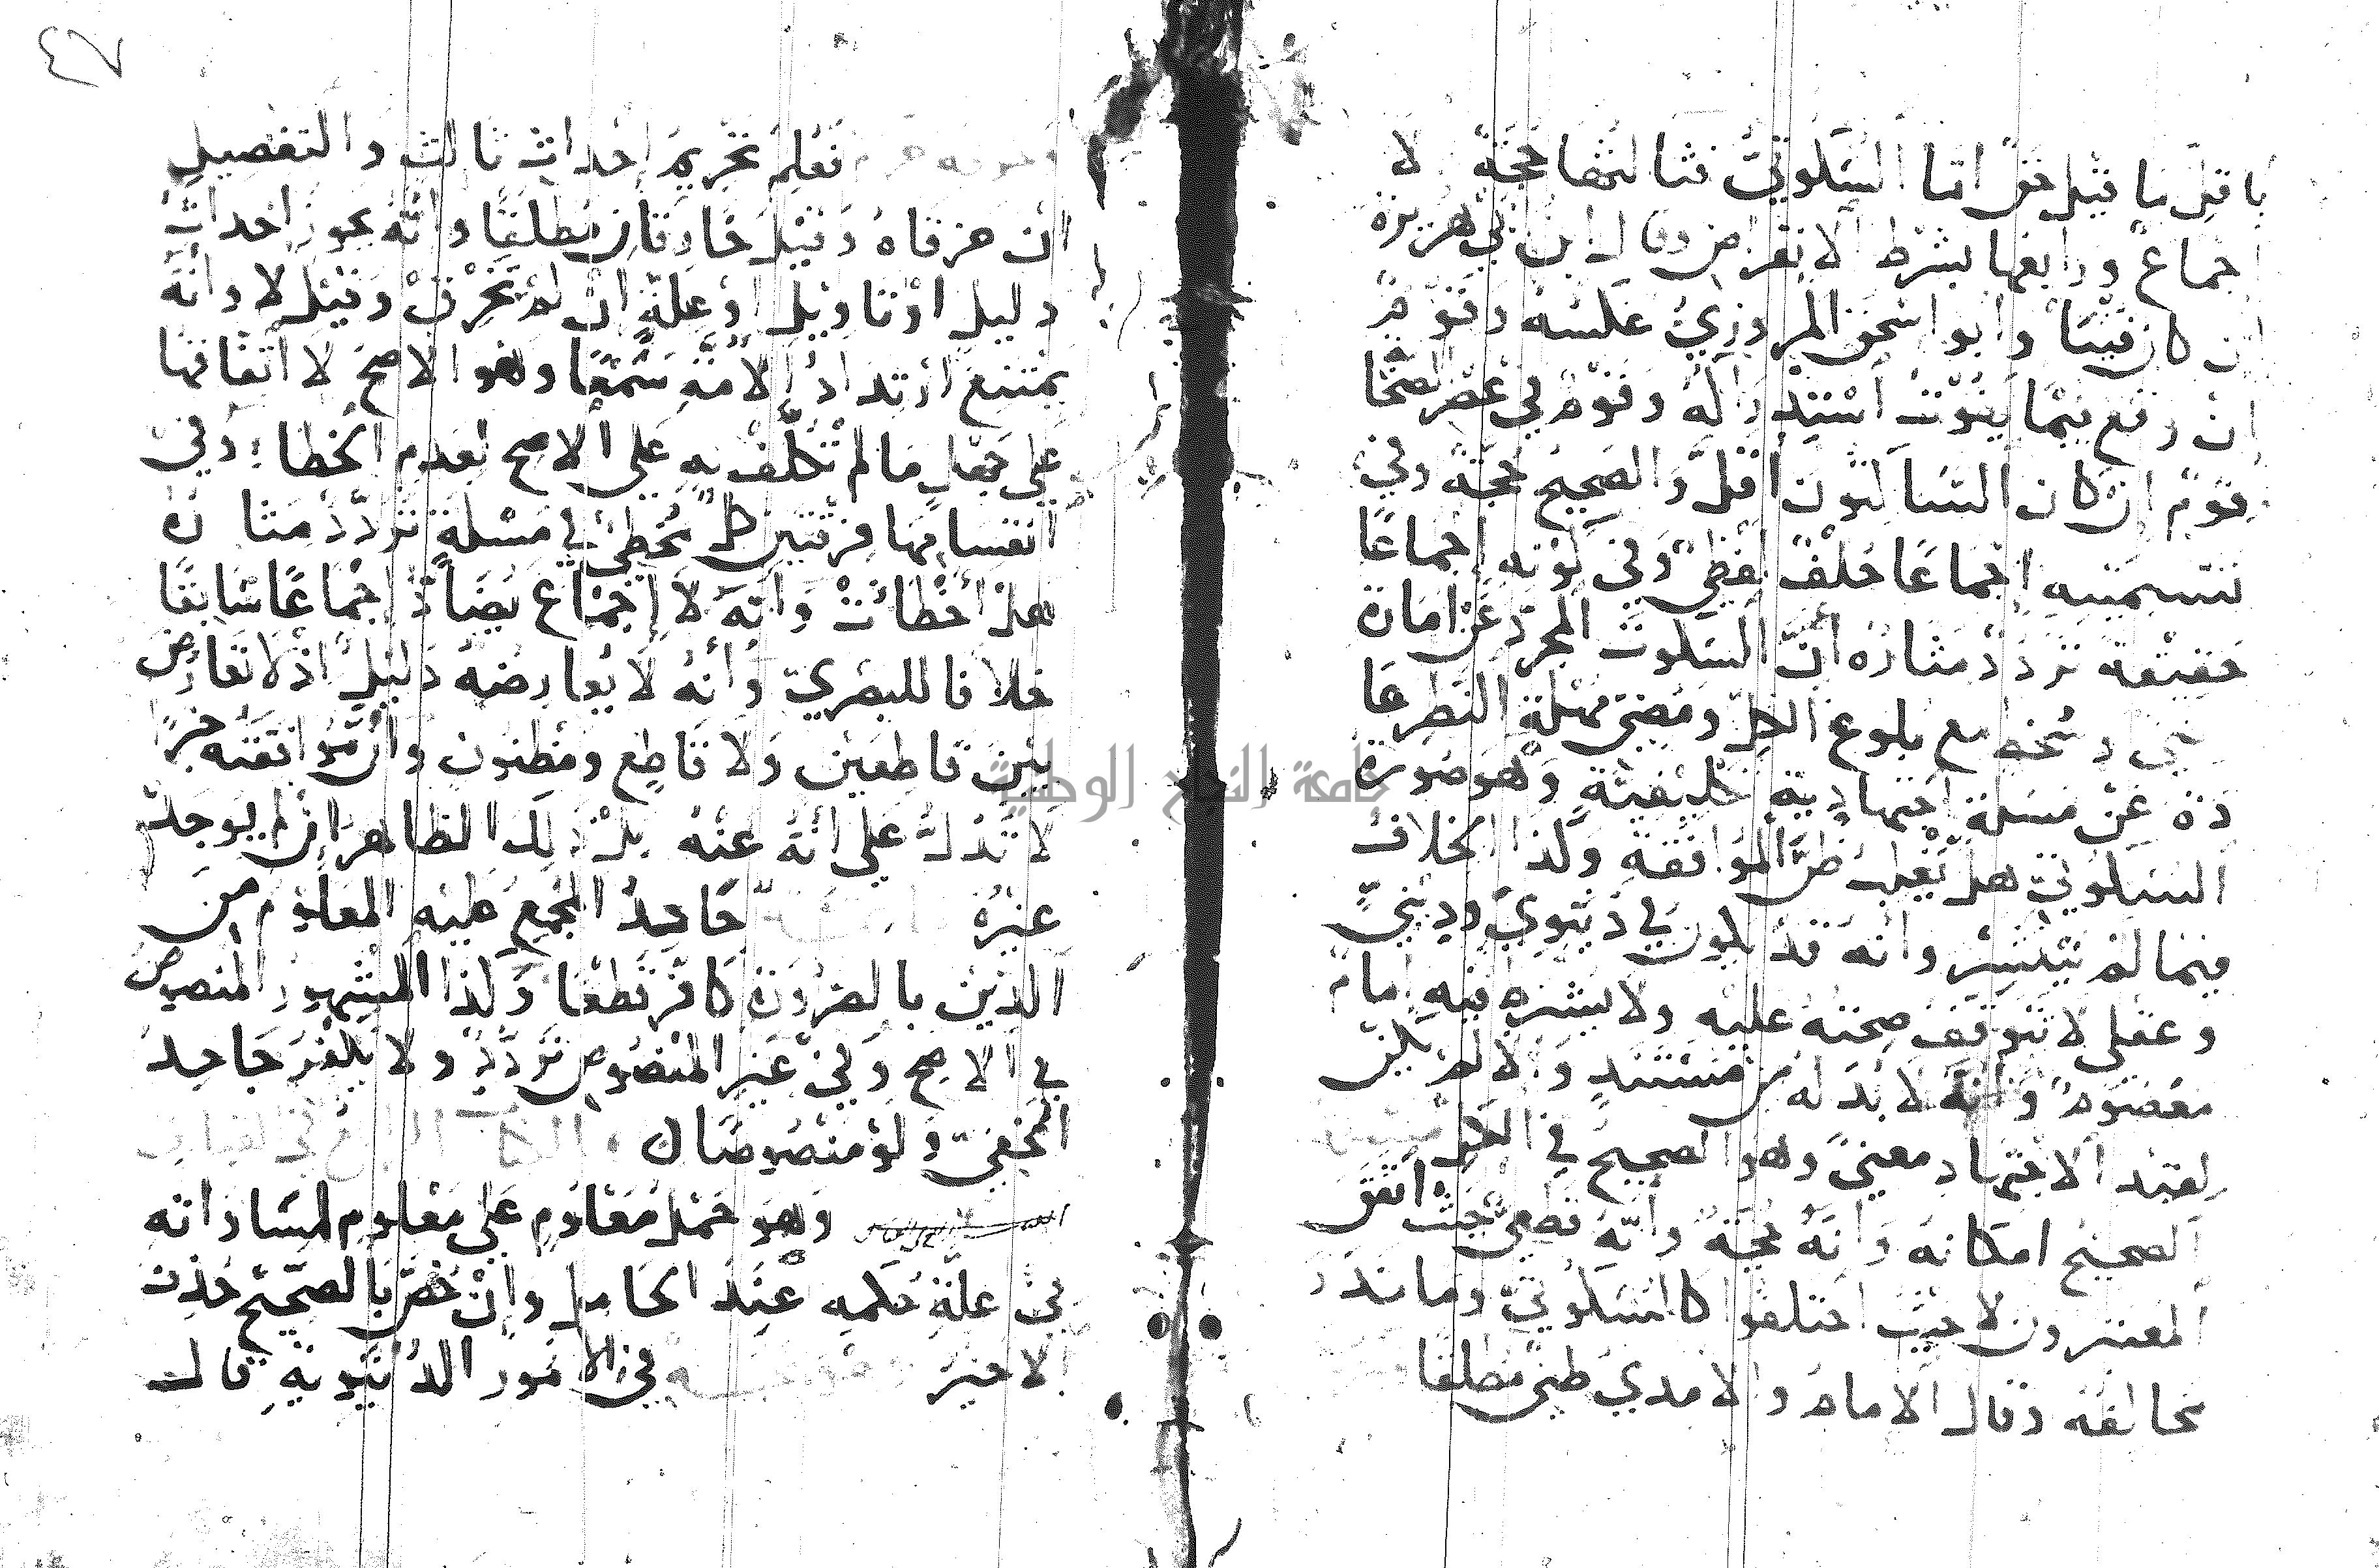 بأقل ما قيل حق أما السكوتي فثالثها حجة لا
إجماع ورابعها بشرط الانقراض وقال ابن أبي هريرة
إن كان فتيا وأبو إسحق المروزي عكسه وقوم
إن وقع فيما يفوت استدراكه وقوم في عصر الصحا
وقوم إن كان الساكتون أقل والصحيح حجة وفي
تسميته إجماعا خلف لفظي وفي كونه إجماعا
حقيقة تردد مثاره أن السكوت المجرد عن امارة
رضى وسخط مع بلوغ الكل ومضي مهلة النظر عا
دة عن مسلة اجتهادية تكليفية وهو صورة
السكوتي هل يغلب ظن الموافقة وكذا الخلاف
فيما لم ينتشر وأنه قد يكون في دنيوي وديني
وعقلي لا تتوقف صحته عليه ولا يشترط فيه إمام
معصوم وأنه لا بد له من مستند وإلا لم يكن
لقيد الاجتهاد معنى وهو الصحيح في الكل
الصحيح امكانه وأنه حجة وأنه قطعي حيث اتفق
المعتبرون لا حيث اختلفوا كالسكوتي وما ندر
مخالفه وقال الإمام والآمدي ظني مطلقا
وخرقه حرام فعلم تحريم إحداث ثالث والتفصيل
ان خرقاه وقيل خارقان مطلقا وأنه يجوز إحداث
دليل أو تاويل أو علة إن لم تخرق وقيل لا وأنه
يمتنع ارتداد الأمة سمعا وهو الاصح لا اتفاقها
على جهل ما لم تكلف به على الأصح لعدم الخطا وفي
انقسامها فرقتين كل مخطئ في مسلة تردد مثاره
هل أخطأت وأنه لا إجماع يضاد إجماعا سابقا
خلافا للبصري وأنه لا يعارضه دليل إذ لا تعارض
بين قاطعين ولا قاطع ومظنون وأن موافقته خبرا
لا تدل على أنه عنه بل ذلك الظاهر إن لم يوجد
غيره جاحد المجمع عليه المعلوم من
الدين بالضرورة كافر قطعا وكذا المشهور المنصوص
في الاصح وفي غير المنصوص تردد ولا يكفر جاحد
الخفي ولو منصوصا الكتاب الرابع في القياس
وهو حمل معلوم على معلوم لمساواته
في علة حكمه عند الحامل وإن خص بالصحيح حذف
الاخير وهو حجة في الامور الدنيوية قال
جامعة النجاح الوطنية
٤٧